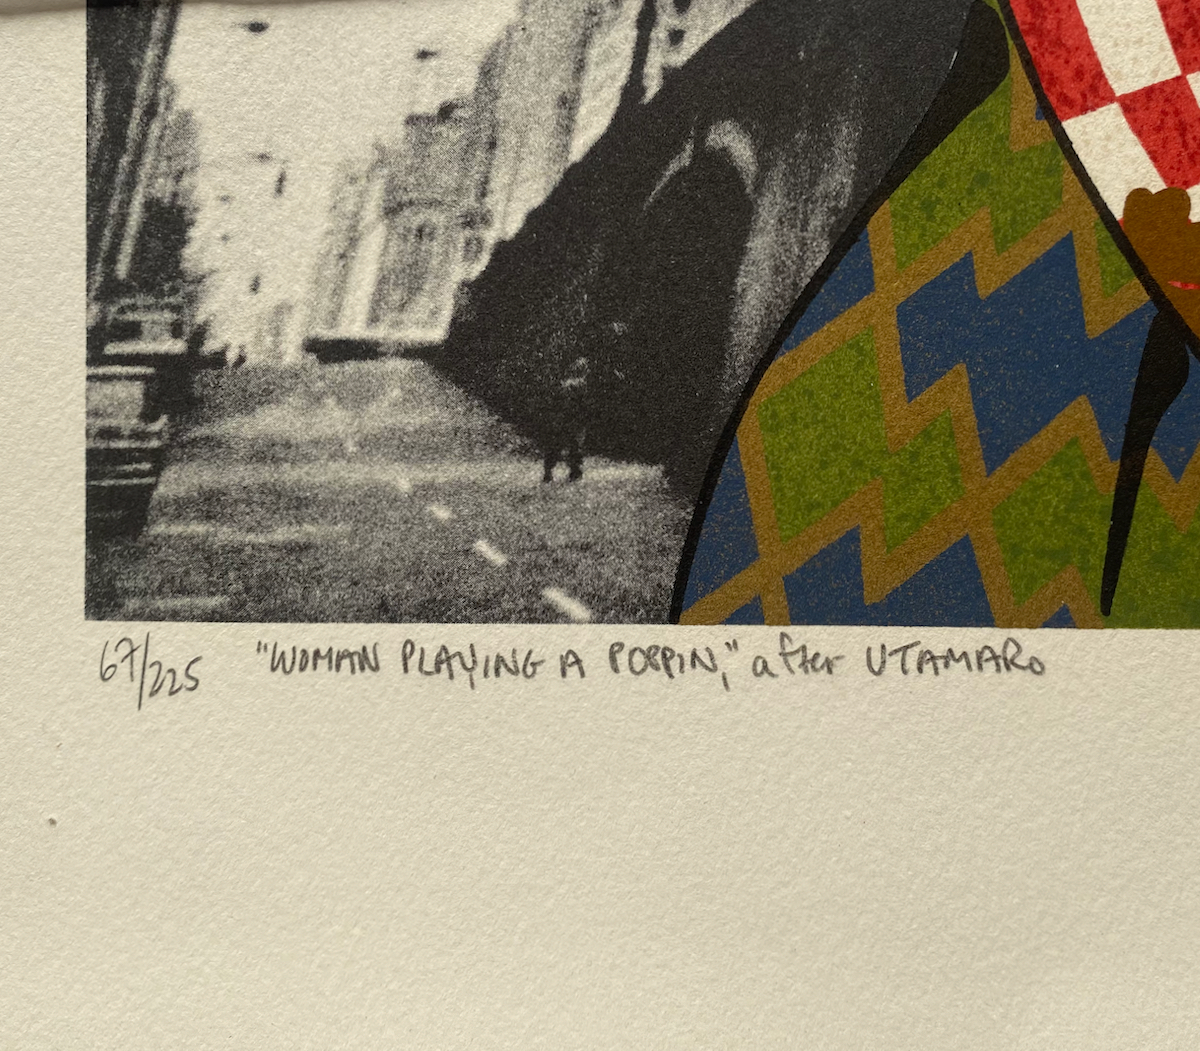 67/225 "WOMAN PLAYING A POPPIN," after UTAMARO